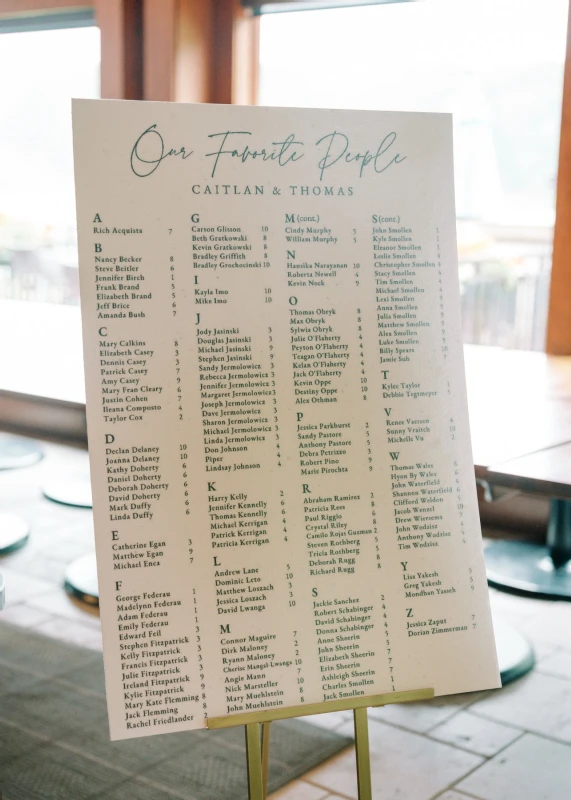 Our Favorite People
CAITLAN & THOMAS
A
Rich Acquista 7
B
Nancy Becker 8
Steve Beitler 6
Jennifer Birch 1
Frank Brand 5
Elizabeth Brand 5
Jeff Brice 6
Amanda Bush 7
C
Mary Calkins 8
Elizabeth Casey 3
Dennis Casey 3
Patrick Casey 7
Amy Casey 9
Mary Fran Cleary 6
Justin Cohen 7
Ileana Composto 4
Taylor Cox 2
D
Declan Delaney 10
Joanna Delaney 10
Kathy Doherty 6
Daniel Doherty 6
Deborah Doherty 6
David Doherty 6
Mark Duffy 6
Linda Duffy 6
E
Catherine Egan 3
Matthew Egan 9
Michael Enea 7
F
George Federau 1
Madelynn Federau 1
Adam Federau 1
Emily Federau 1
Edward Feil 3
Stephen Fitzpatrick 3
Kelly Fitzpatrick 3
Francis Fitzpatrick 3
Julie Fitzpatrick 3
Ireland Fitzpatrick 9
Kylie Fitzpatrick 9
Mary Kate Flemming 8
Jack Flemming 8
Rachel Friedlander 2
G
Carson Glisson 10
Beth Gratkowski 8
Kevin Gratkowski 8
Bradley Griffith 8
Bradley Grochocinski 10
I
Kayla Imo 10
Mike Imo 10
J
Jody Jasinski 3
Douglas Jasinski 3
Michael Jasinski 9
Stephen Jasinski 9
Sandy Jermolowicz 3
Rebecca Jermolowicz 3
Jennifer Jermolowicz 3
Margaret Jermolowicz 3
Joseph Jermolowicz 3
Dave Jermolowicz 3
Sharon Jermolowicz 3
Michael Jermolowicz 3
Linda Jermolowicz 3
Don Johnson 4
Piper 4
Lindsay Johnson 4
K
Harry Kelly 2
Jennifer Kennelly 6
Thomas Kennelly 6
Michael Kerrigan 4
Patrick Kerrigan 4
Patricia Kerrigan 4
L
Andrew Lane 5
Dominic Leto 10
Matthew Loszach 3
Jessica Loszach 3
David Lwanga 10
M
Connor Maguire 7
Dirk Maloney 2
Ryann Maloney 2
Cherise Mangst-Lwanga 10
Angie Mann 7
Nick Marsteller 10
Mary Muehlstein 8
John Muehlstein 8
M (cont.)
Cindy Murphy 5
William Murphy 5
N
Hansika Narayanan 10
Roberta Newell 4
Kevin Nock 9
O
Thomas Obryk 8
Max Obryk 8
Sylwia Obryk 8
Julie O'Flaherty 4
Peyton O'Flaherty 4
Teagan O'Flaherty 4
Kelan O'Flaherty 4
Jack O'Flaherty 4
Kevin Oppe 10
Destiny Oppe 10
Alex Othman 8
P
Jessica Parkhurst 2
Sandy Pastore 5
Anthony Pastore 5
Debra Petrizzo 3
Robert Pino 9
Marie Pirochta 9
R
Abraham Ramirez 2
Patricia Rees 8
Paul Riggio 6
Crystal Riley 8
Camilo Rojas Guzman 2
Steven Rothberg 5
Tricia Rothberg 5
Deborah Rugg 8
Richard Rugg 8
S
Jackie Sanchez 2
Robert Schabinger 4
David Schabinger 4
Donna Schabinger 4
Anne Sheerin 5
John Sheerin 5
Elizabeth Sheerin 7
Erin Sheerin 7
Ashleigh Sheerin 7
Charles Smollen 1
Jack Smollen 1
S (cont.)
John Smollen 1
Kyle Smollen 1
Eleanor Smollen
Leslie Smollen
Christopher Smollen
Stacy Smollen
Tim Smollen
Michael Smollen
Lexi Smollen
Anna Smollen
Julia Smollen
Matthew Smollen
Alex Smollen
Luke Smollen
Billy Spears
Jamie Suh 7
T
Kylee Taylor 1
Debbie Tegtmeyer
V
Renee Vaessen 8
Sunny Vraitch 10
Michelle Vu 2
W
Thomas Wales
Hyon By Wales
John Waterfield
Shannon Waterfield
Clifford Weldon
Jacob Wenzel
Drew Wiersema
John Wodzisz
Anthony Wodzisz
Tim Wodzisz
Y
Lisa Yakesh
Greg Yakesh
Mondhan Yasseh 9
Z
Jessica Zaput 7
Dorian Zimmerman 7